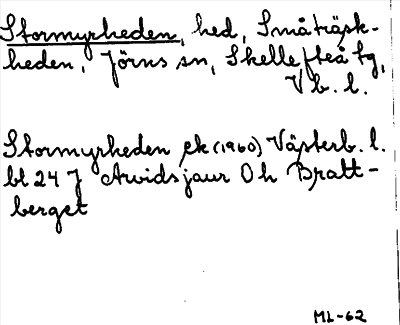 Stormyrheden, hed, Småträsk-
heden, Jörns sn, Skellefteå tg,
Vb. l.
Stormyrheden ek (1960) Västerb. l.
bl 24 J Arvidsjaur Öh Bratt-
berget
ML-62